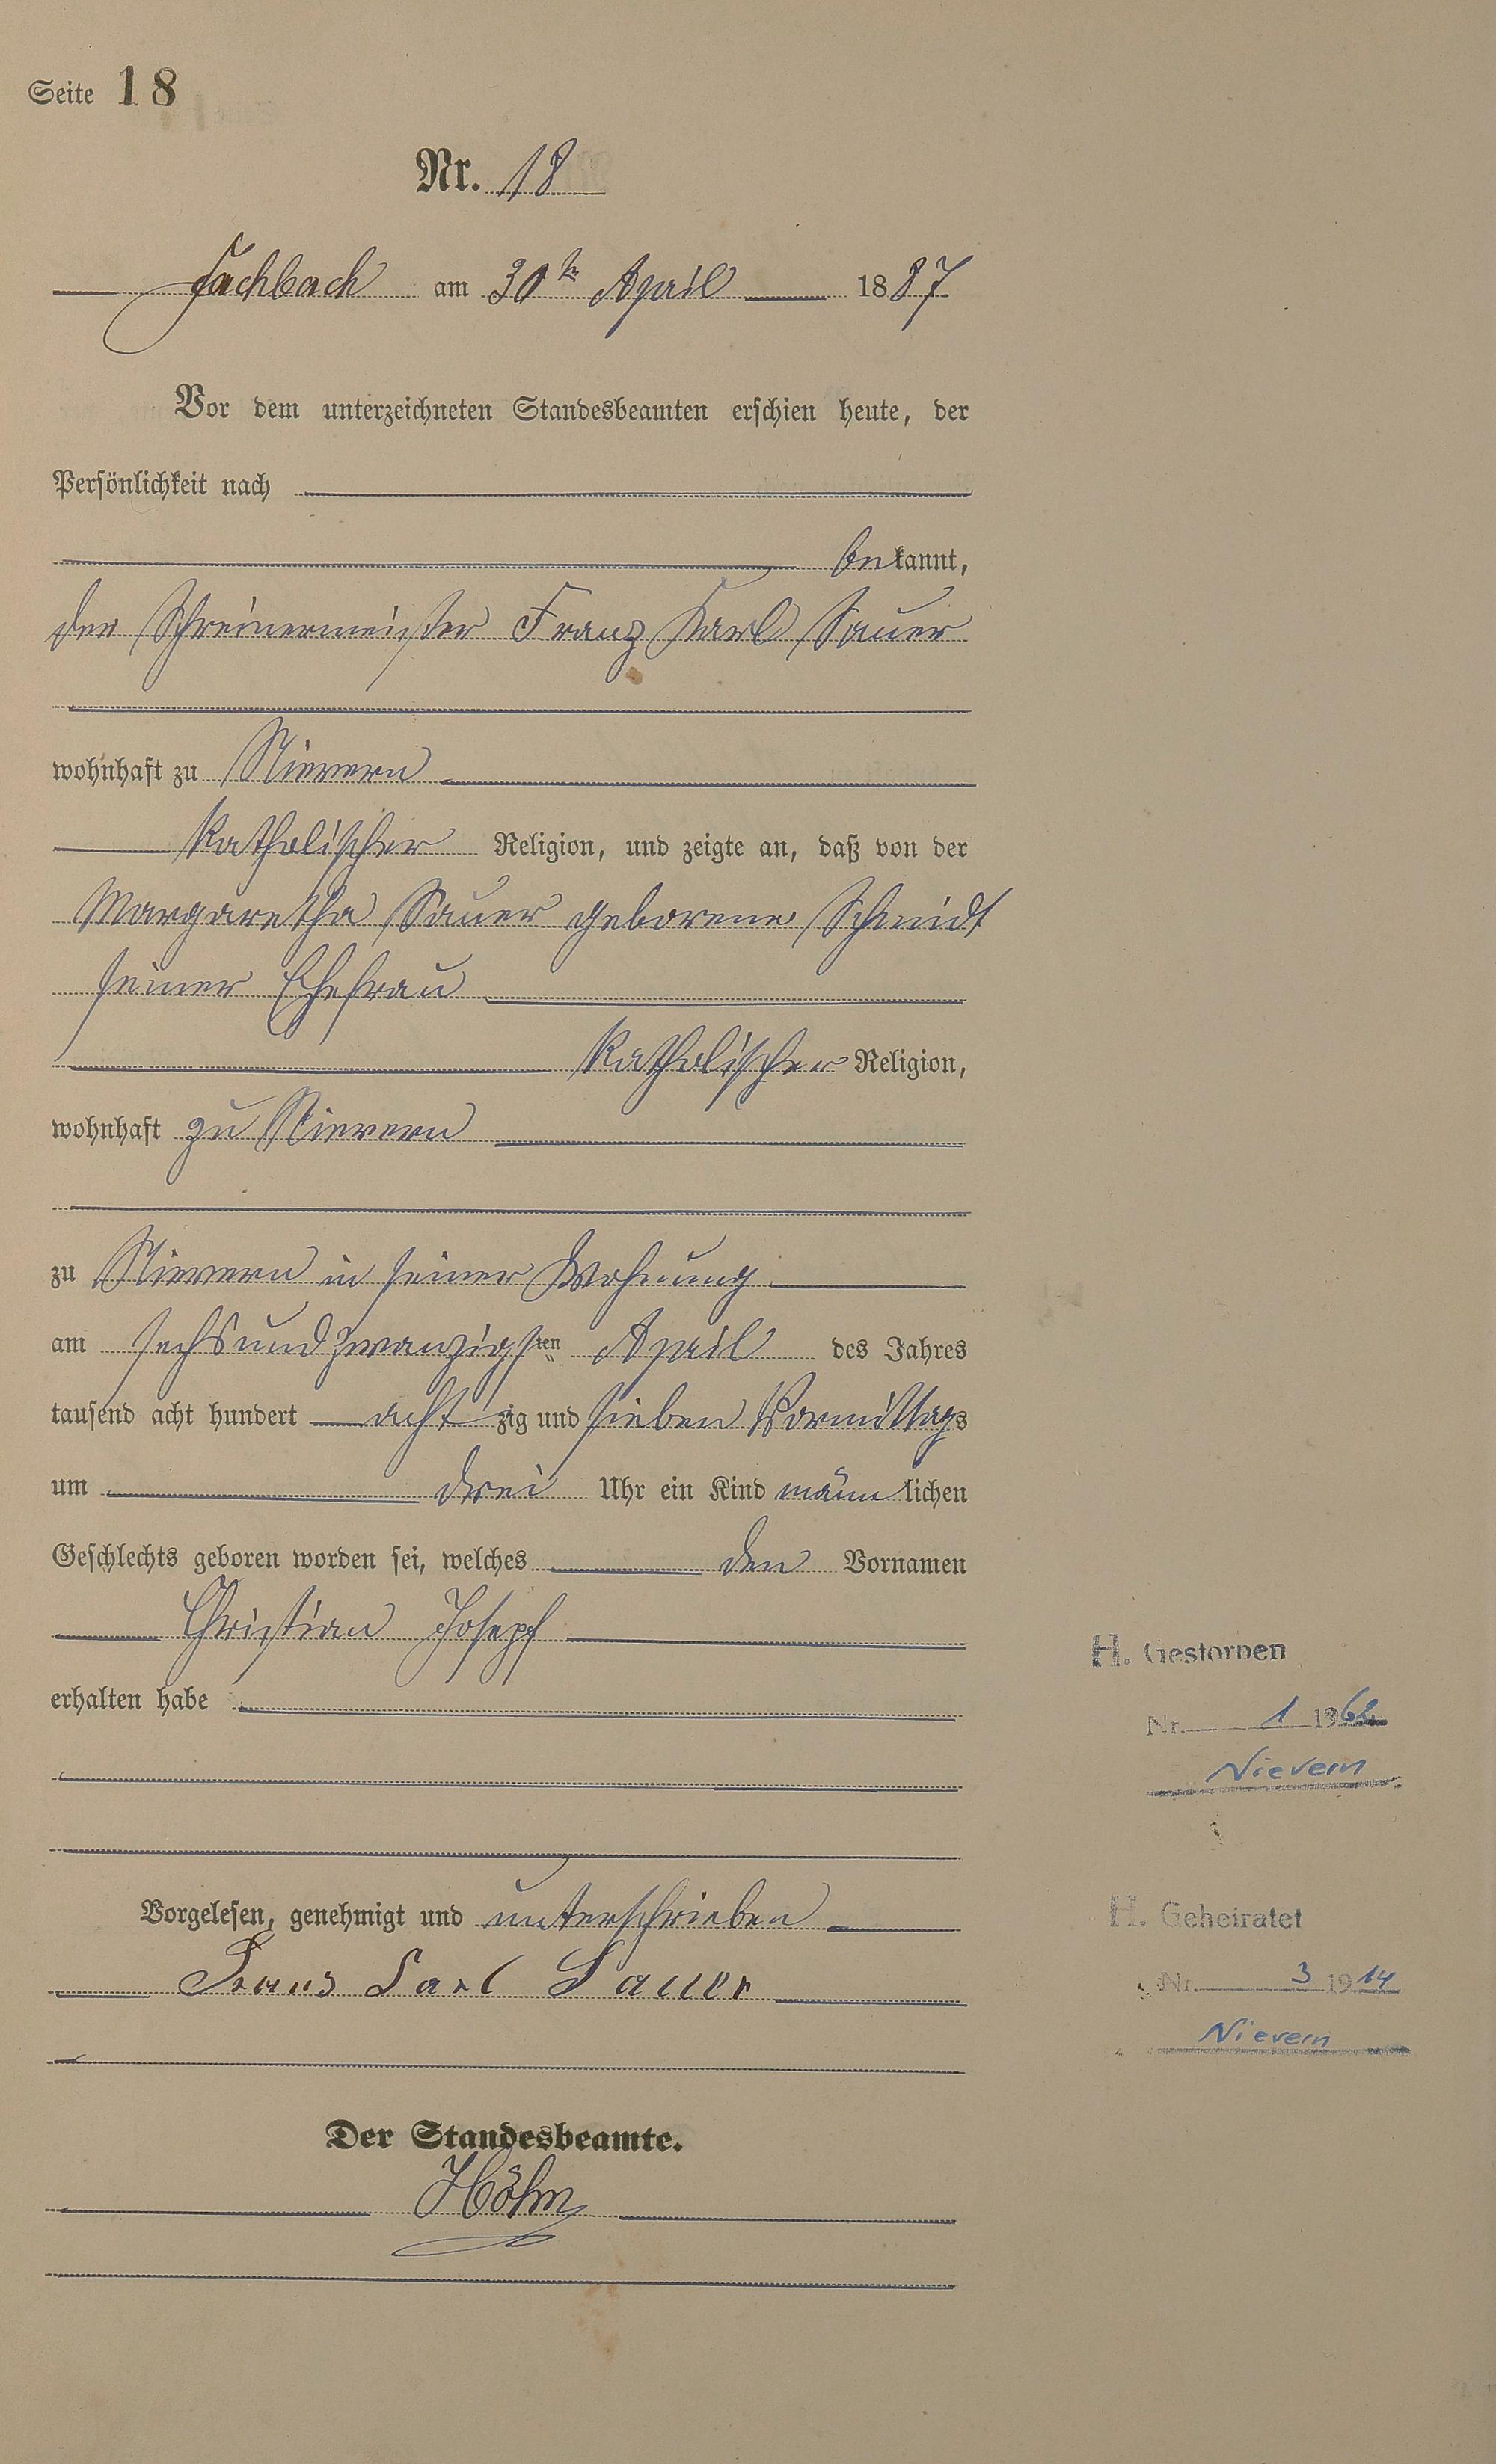 Seite 18
Nr. 18
Fachbach am 30ten April 1887
Vor dem unterzeichneten Standesbeamten erschien heute, der
Persönlichkeit nach
bekannt,
der Schreinermeister Franz Karl Sauer
wohnhaft zu Nievern
katholischer Religion, und zeigte an, daß von der
Margaretha Sauer geborene Schmidt
seiner Ehefrau
katholischer Religion,
wohnhaft zu Nievern
zu Nievern in seiner Wohnung
am sechsundzwanzigsten April des Jahres
tausend acht hundert achtzig und sieben Vormittags
um drei Uhr ein Kind männlichen
Geschlechts geboren worden sei, welches den Vornamen
Christian Joseph
erhalten habe
H. Gestorben
Nr. 1 1962
Nievern
Vorgelesen, genehmigt und unterschrieben
Franz Carl Sauer
H. Geheiratet
Nr. 3 1914
Nievern
Der Standesbeamte.
Höhn